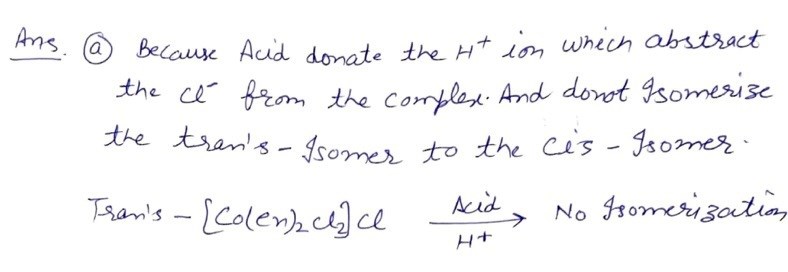 Ans. ⓐ Because Acid donate the H⁺ ion which abstract
the Cl⁻ from the complex. And donot Isomerize
the tran's - Isomer to the Cis - Isomer.
Tran's - [Co(en)₂Cl₂]Cl Acid/H⁺ → No Isomerization